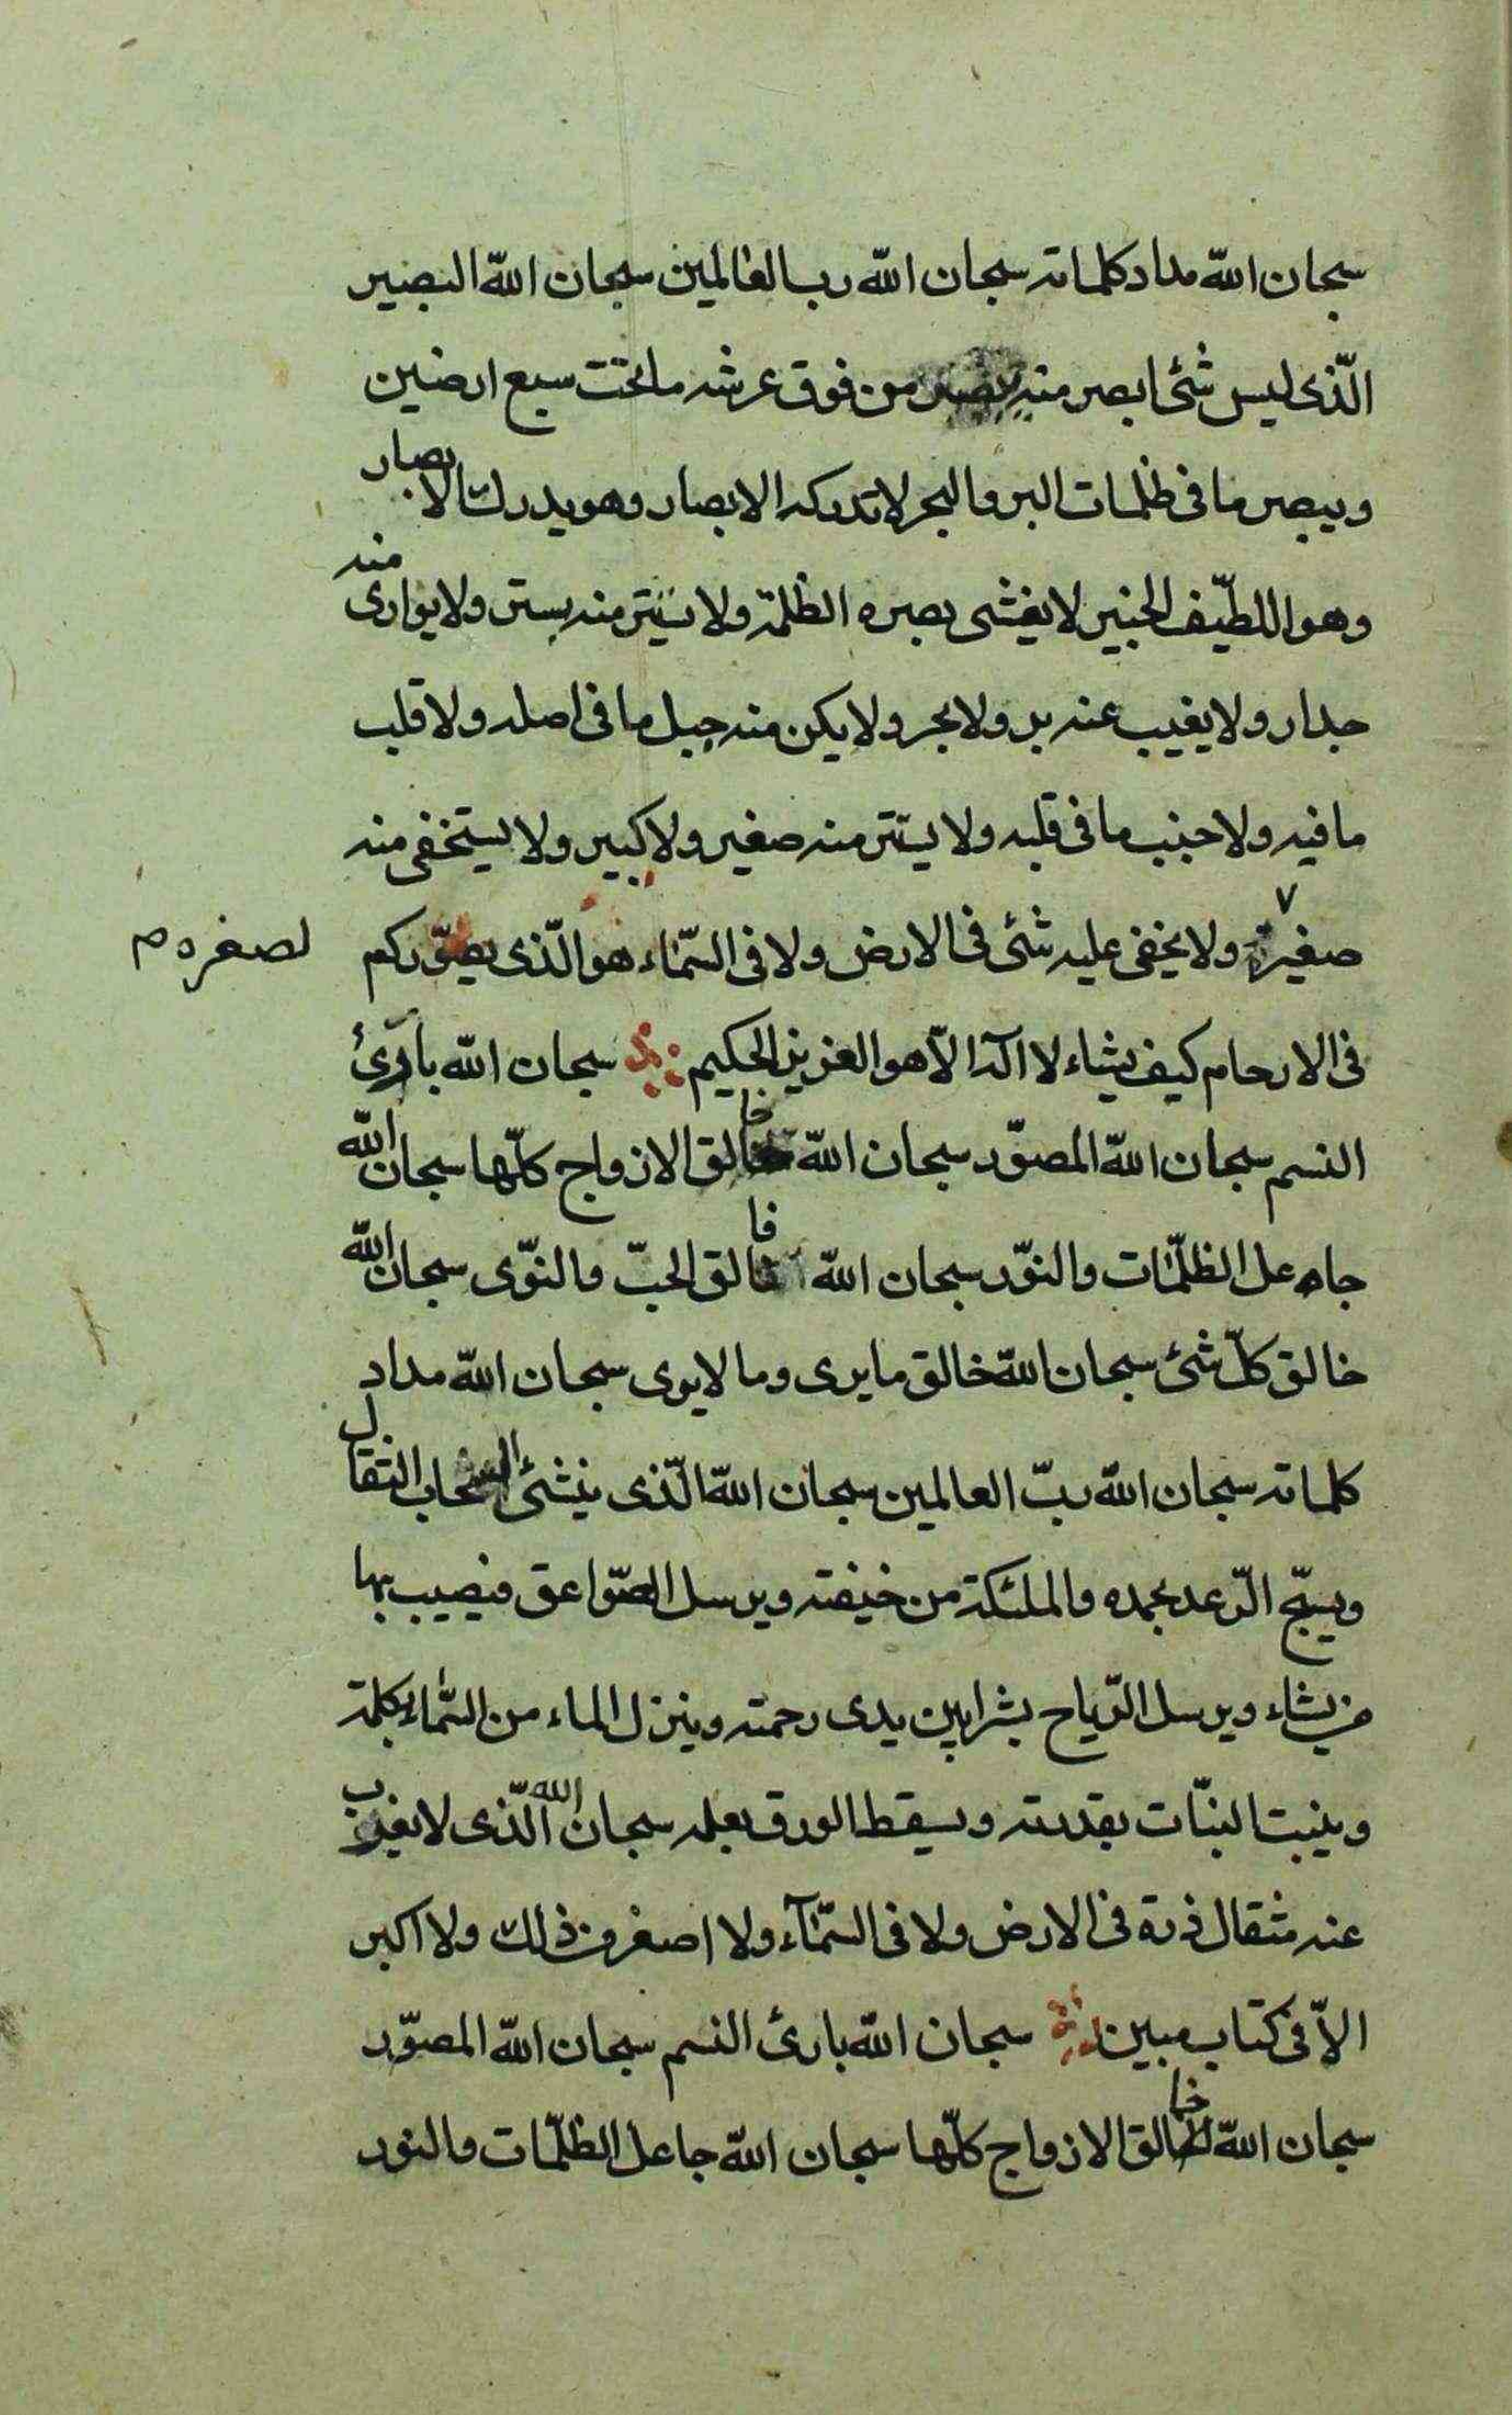 سبحان الله مداد كلماته سبحان الله رب العالمين سبحان الله البصير
الّذى ليس شئ ابصر منه يبصر من فوق عرشه ماتحت سبع ارضين
ويبصر ما فى ظلمات البر والبحر لا تدركه الابصار وهو يدرك الابصار
وهو اللطّيف الخبير لا يغشى بصره الظلمة ولا يستتر منه بستر ولا يوارى منه
جدار ولا يغيب عنه بر ولا بحر ولا يكن منه جبل ما فى اصله ولا قلب
ما فيه ولا جنب ما فى قلبه ولا يستتر منه صغير ولا كبير ولا يستخفى منه
صغير ٧ ولا يخفى عليه شئ فى الارض ولا فى السّماء هو الّذى يصوّركم
لصغره م
فى الارحام كيف يشاء لا اله الّا هو العزيز الحكيم سبحان الله بارئ
النسم سبحان الله المصوّر سبحان الله خالق الازواج كلّها سبحان الله
جاعل الظلّمات والنوّر سبحان الله فالق الحبّ والنوّى سبحان الله
خالق كلّ شئ سبحان الله خالق ما يرى وما لا يرى سبحان الله مداد
كلماته سبحان الله ربّ العالمين سبحان الله الّذى ينشئ السّحاب الثقال
ويسبّح الرّعد بحمده والملئكة من خيفته ويرسل الصّواعق فيصيب بها
من يشاء ويرسل الرّياح بشرا بين يدى رحمته وينزل الماء من السّماء بكلمة
وينبت النبّات بقدرته ويسقط الورق بعلمه سبحان الله الّذى لا يعزب
عنه مثقال ذرة فى الارض ولا فى السّمآء ولا اصغر من ذلك ولا اكبر
الاّ فى كتاب مبين سبحان الله بارئ النسم سبحان الله المصوّر
سبحان الله خالق الازواج كلّها سبحان الله جاعل الظلّمات والنور